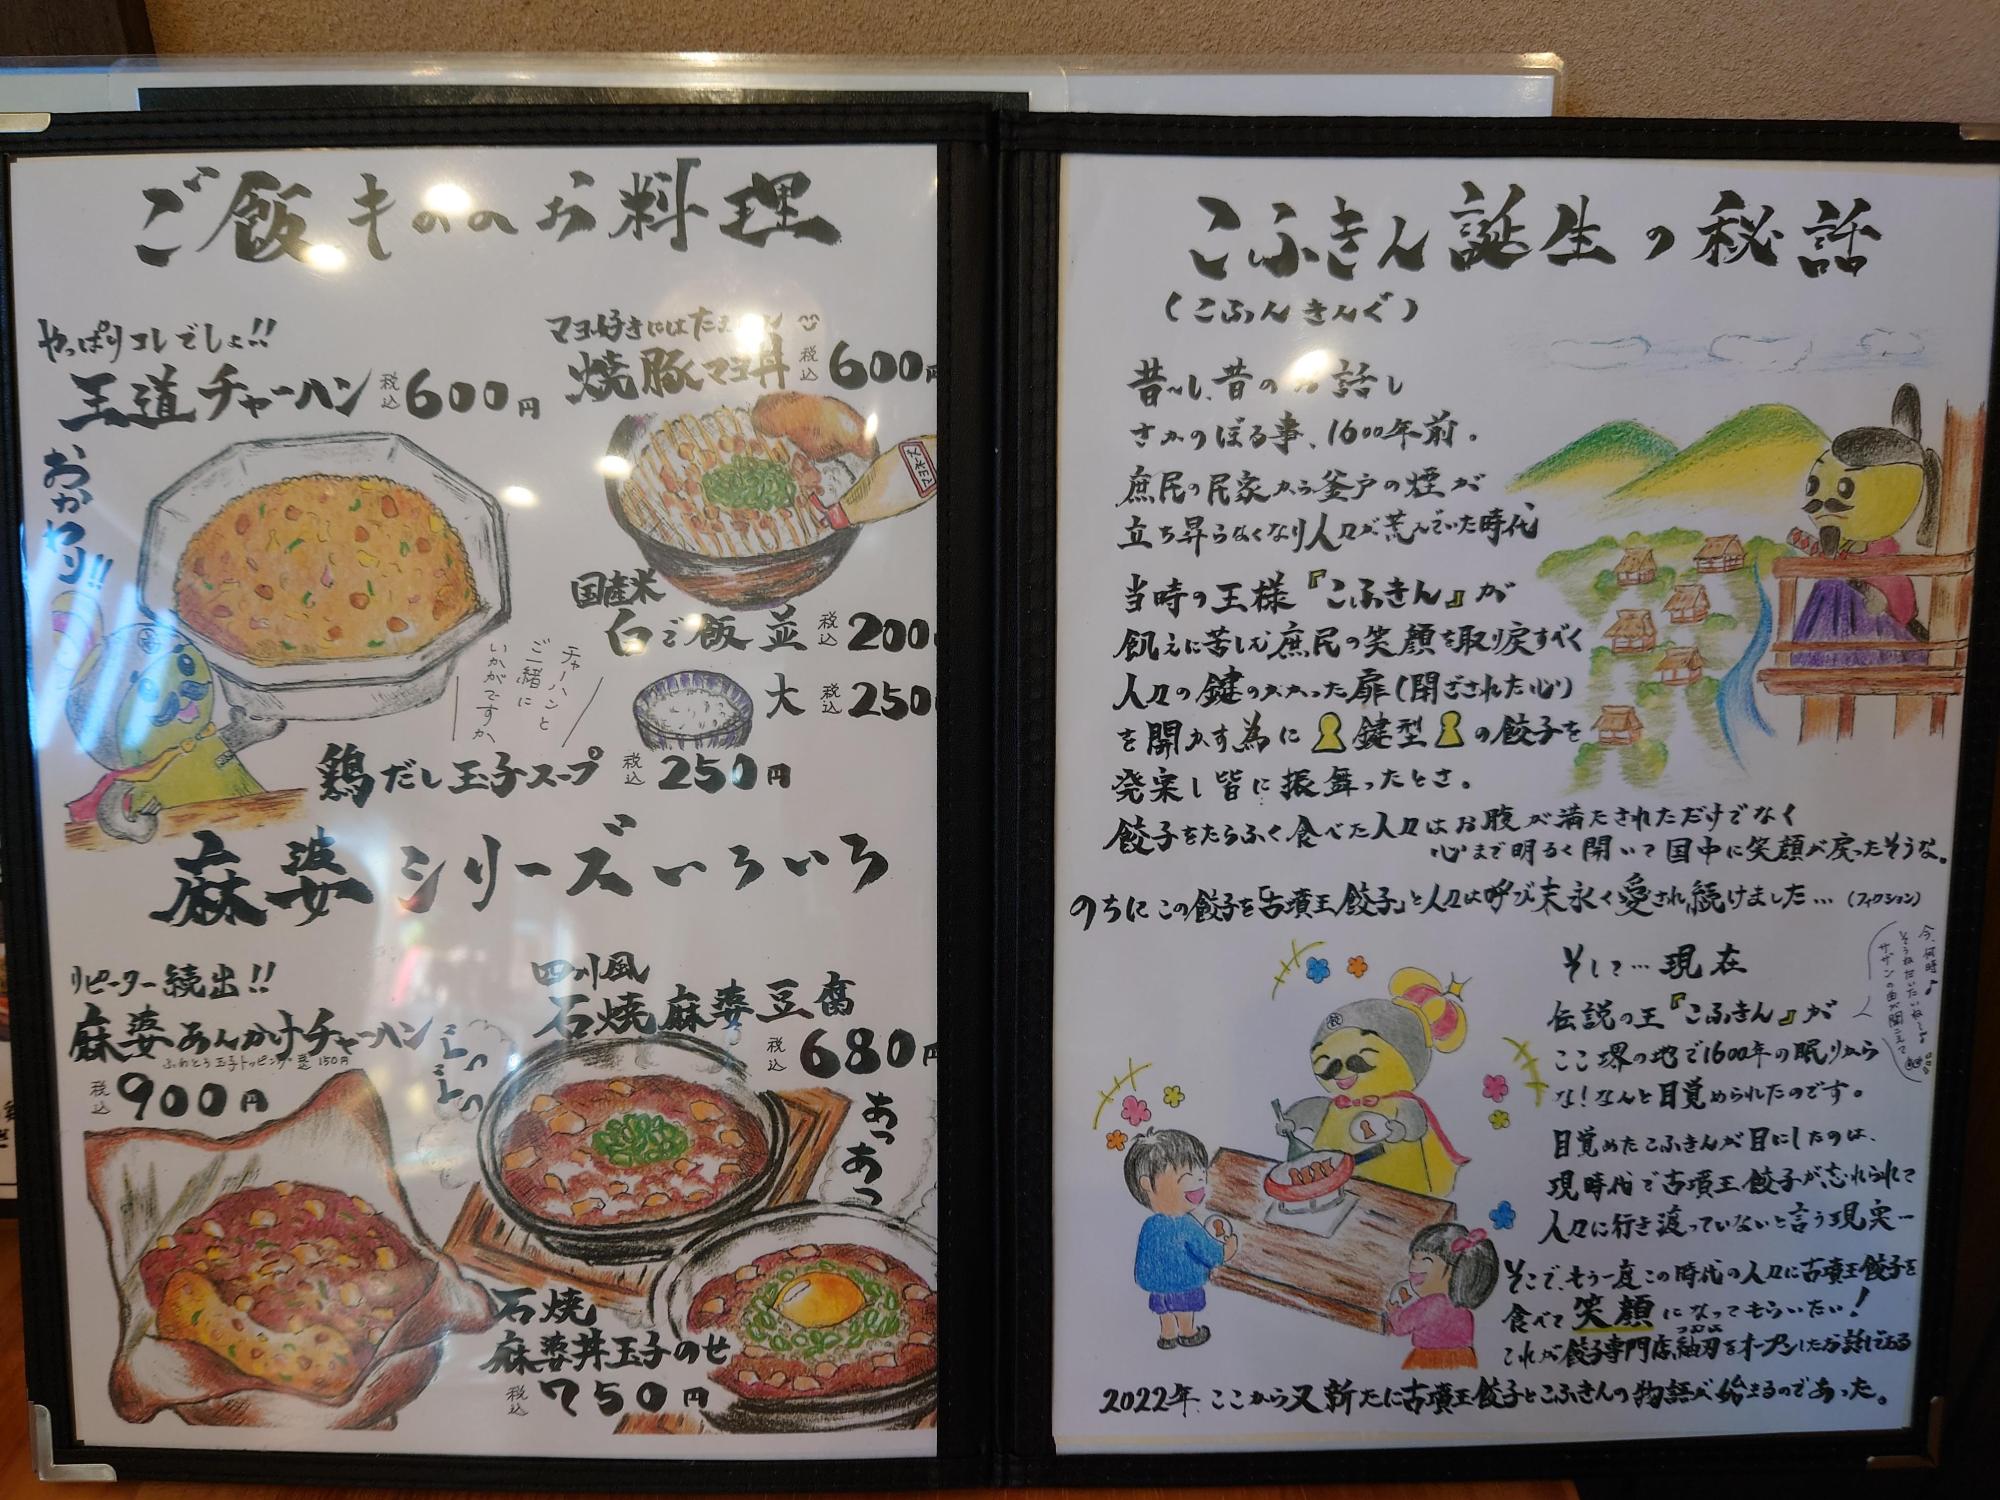 ご飯もののお料理
やっぱりコレでしょ!!
王道チャーハン 税込 600円
おかわり!!
マヨ好きにはたまらん
焼豚マヨ丼 税込 600円
国産米
白ご飯 並 税込 200
大 税込 250
チャーハンと
ご一緒に
いかがですか
鶏だし玉子スープ 税込 250円
麻婆シリーズいろいろ
リピーター続出!!
麻婆あんかけチャーハン
ふわとろ玉子トッピング 税込 150円
税込 900円
四川風
石焼麻婆豆腐
税込 680円
あっあっ
石焼
麻婆丼玉子のせ
税込 750円
こふきん誕生の秘話
(こふんきんぐ)
昔〜し、昔のお話し
さかのぼる事、1600年前。
庶民の民家から釜戸の煙が
立ち昇らなくなり人々が荒んでいた時代
当時の王様『こふきん』が
飢えに苦しむ庶民の笑顔を取り戻すべく
人々の鍵のかかった扉(閉ざされた心)
を開かす為に鍵型の餃子を
発案し皆に振舞ったとさ。
餃子をたらふく食べた人々はお腹が満たされただけでなく
心まで明るく開いて国中に笑顔が戻ったそうな。
のちにこの餃子を「古墳王餃子」と人々は呼び末永く愛され続けました…(フィクション)
そして…現在
伝説の王『こふきん』が
ここ堺の地で1600年の眠りから
な!なんと目覚められたのです。
今、何時♪
そうねだいたいねー♪
サザンの曲が聞こえて
目覚めたこふきんが目にしたのは、
現時代で古墳王餃子が忘れられて
人々に行き渡っていないと言う現実…
そこで、もう一度この時代の人々に古墳王餃子を
食べて笑顔になってもらいたい!
これが餃子専門店紬刃をオープンしたお話しである
2022年、ここから又新たに古墳王餃子とこふきんの物語が始まるのであった。